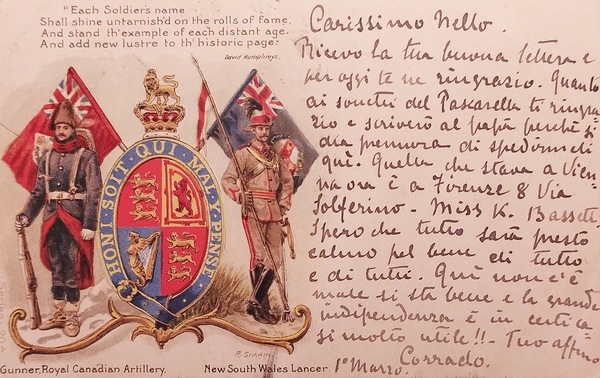 "Each Soldier's name
Shall shine untarnish'd on the rolls of fame,
And stand th' example of each distant age,
And add new lustre to th' historic page:
David Humphreys.
HONI · SOIT · QUI · MAL · Y · PENSE
R. SIMKIN
Gunner, Royal Canadian Artillery.
New South Wales Lancer.
Carissimo Nello.
Ricevo la tua buona lettera e
per oggi te ne ringrazio. Quanto
ai sonetti del Pascarella ti ringra
zio e scriverò al papà perchè si
dia premura di spedirmeli
qui. Quella che stava a Vien
na ora è a Firenze 8 Via
Solferino - Miss K. Bassett.
Spero che tutto sarà presto
calmo pel bene di tutto
e di tutti. Qui non c'è
male si sta bene e la grande
indipendenza è in certica
si molto utile!! - Tuo affmo
Corrado.
1° Marzo.